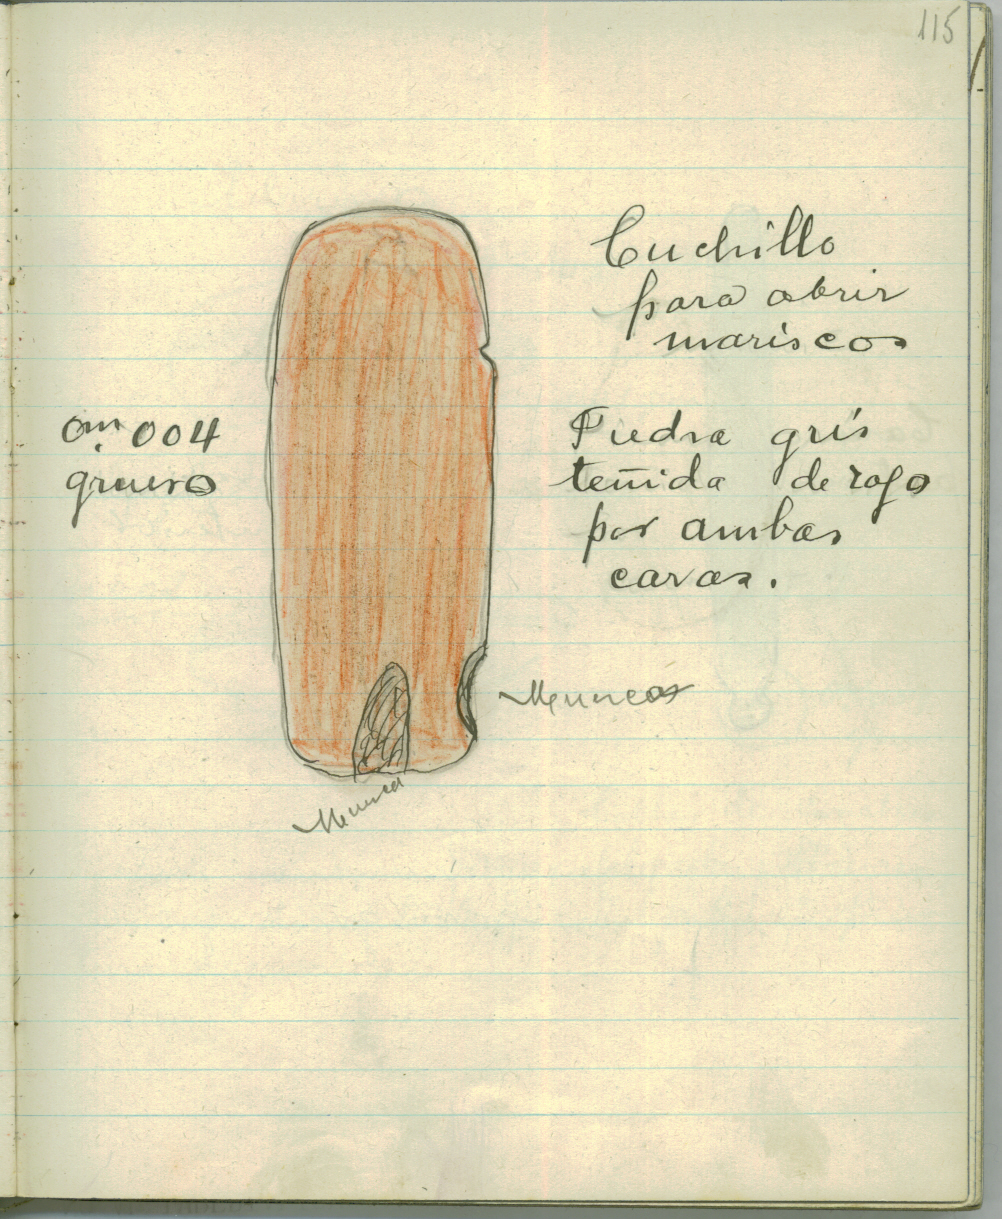 115
Cuchillo
para abrir
mariscos
0m.004
grueso
Piedra gris
teñida de rojo
por ambas
caras.
Muescas
Muesca